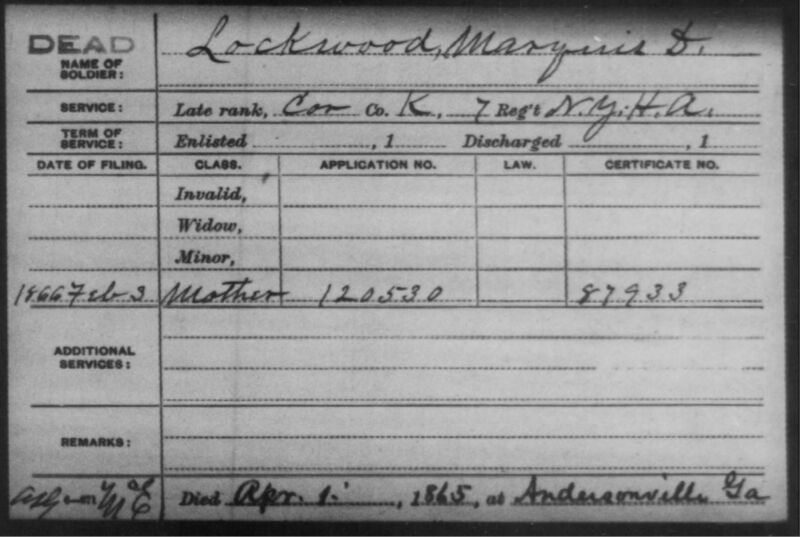 DEAD
NAME OF SOLDIER: Lockwood, Marquis D.
SERVICE: Late rank, Cor Co. K, 7 Reg't N.Y.H.A.
TERM OF SERVICE: Enlisted , 1 Discharged , 1
DATE OF FILING. CLASS. APPLICATION NO. LAW. CERTIFICATE NO.
Invalid,
Widow,
Minor,
1866 Feb 3 Mother 120530 87933
ADDITIONAL SERVICES:
REMARKS:
Died Apr. 1, 1865, at Andersonville Ga